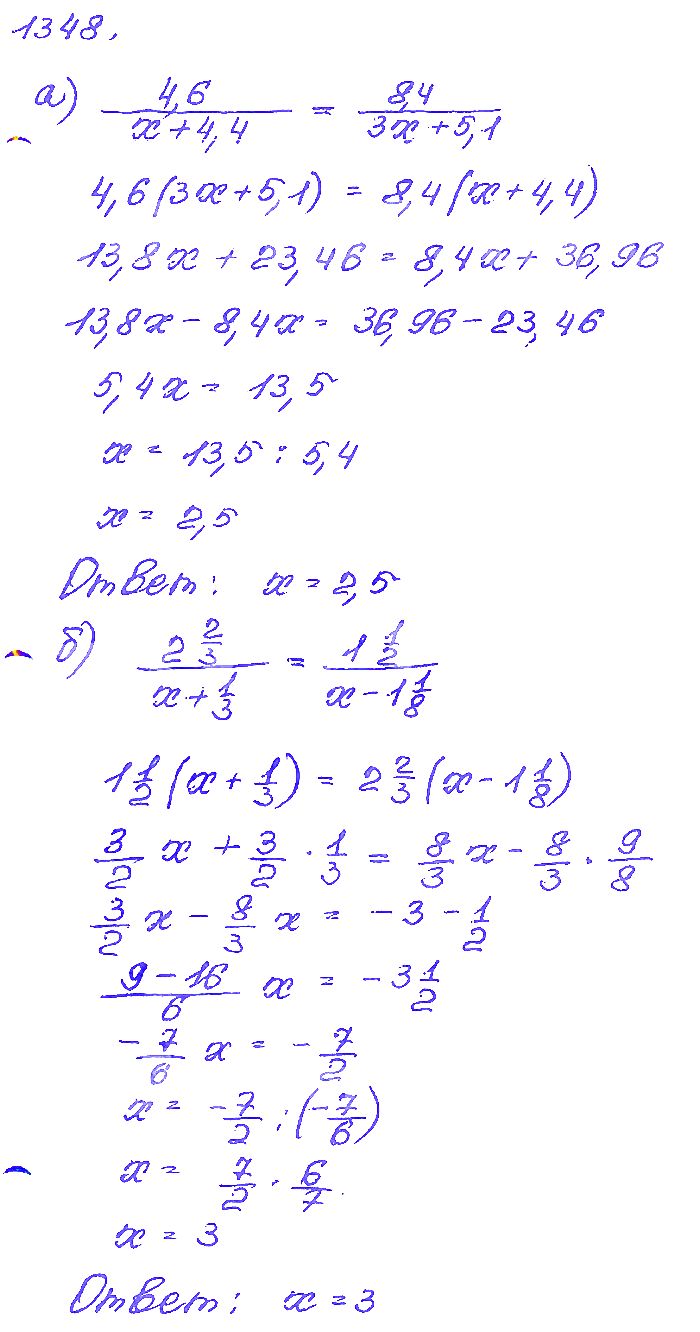 1348.
а) 4,6/(x+4,4) = 8,4/(3x+5,1)
4,6(3x+5,1) = 8,4(x+4,4)
13,8x + 23,46 = 8,4x + 36,96
13,8x - 8,4x = 36,96 - 23,46
5,4x = 13,5
x = 13,5 : 5,4
x = 2,5
Ответ: x = 2,5
б) 2 2/3/(x+1/3) = 1 1/2/(x-1 1/8)
1 1/2(x + 1/3) = 2 2/3(x - 1 1/8)
3/2 x + 3/2 · 1/3 = 8/3 x - 8/3 · 9/8
3/2 x - 8/3 x = -3 - 1/2
(9-16)/6 x = -3 1/2
-7/6 x = -7/2
x = -7/2 : (-7/6)
x = 7/2 · 6/7
x = 3
Ответ: x = 3